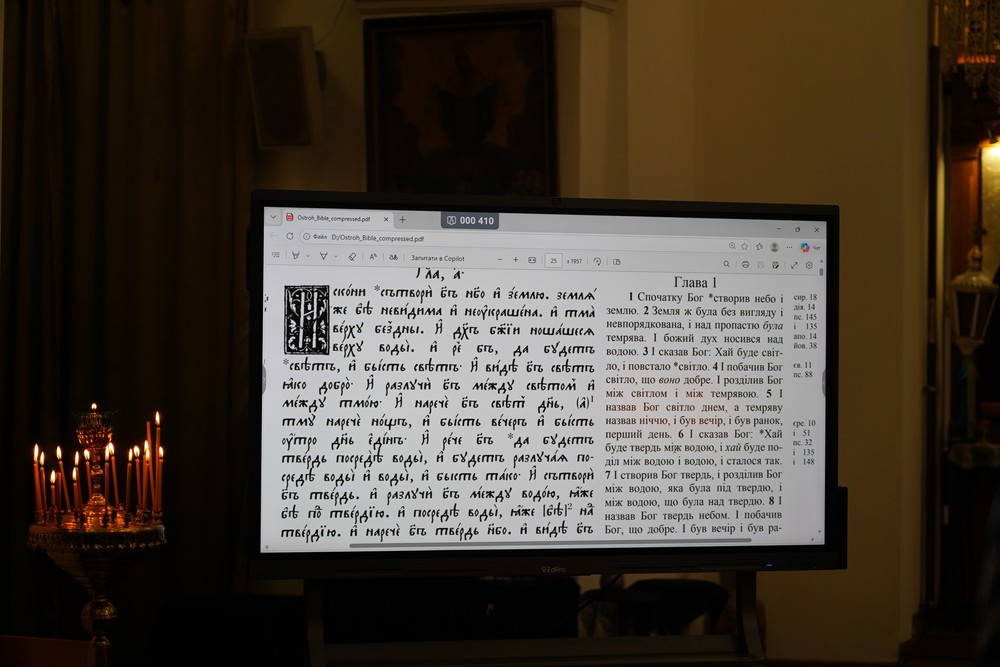 Ostroh_Bible_compressed.pdf
000 410
Файл D:/Ostroh_Bible_compressed.pdf
Чат
Запитати в Copilot
25 з 1957
Гл҃а, а҃·
Искони *сътвори бг҃ъ нб҃о и҆ землю. земля
же бѣ невидима и҆ неоукрашена. и҆ тма
верху бездны. И҆ дх҃ъ бж҃їи ношашеся
верху воды. и҆ рє бг҃ъ, да будетъ
*свѣтъ, и҆ бысть свѣтъ· И҆ видѣ бг҃ъ свѣтъ
ꙗко добро· И҆ разлучи бг҃ъ между свѣтом и҆
между тмою· И҆ нарече бг҃ъ свѣт дн҃ь, (а҆)¹
тму нарече нощъ, и҆ бысть вечеръ и҆ бысть
оутро дн҃ь е҆динъ· И҆ рече бг҃ъ *да будетъ
твердь посредѣ воды, и҆ будетъ разлучая по-
средѣ воды и҆ воды, и҆ бысть тако· И҆ сътвори
бг҃ъ твердь. и҆ разлучи бг҃ъ между водою, ꙗже
бѣ под твердїю. и҆ посредѣ воды, ꙗже |бѣ|² над
твердїю. и҆ нарече бг҃ъ твердь нб҃о. и҆ видѣ бг҃ъ
Глава 1
1 Спочатку Бог *створив небо і
землю. 2 Земля ж була без вигляду і
невпорядкована, і над пропастю була
темрява. І божий дух носився над
водою. 3 І сказав Бог: Хай буде світ-
ло, і повстало *світло. 4 І побачив Бог
світло, що воно добре. І розділив Бог
між світлом і між темрявою. 5 І
назвав Бог світло днем, а темряву
назвав ніччю, і був вечір, і був ранок,
перший день. 6 І сказав Бог: *Хай
буде твердь між водою, і хай буде по-
діл між водою і водою, і сталося так.
7 І створив Бог твердь, і розділив Бог
між водою, яка була під твердю, і
між водою, що була над твердю. 8 І
назвав Бог твердь небом. І побачив
Бог, що добре. І був вечір і був ра-
сир. 18
дія. 14
пс. 145
і 135
апо. 14
йов. 38
єв. 11
пс. 88
єре. 10
і 51
пс. 32
і 135
і 148
EdPro